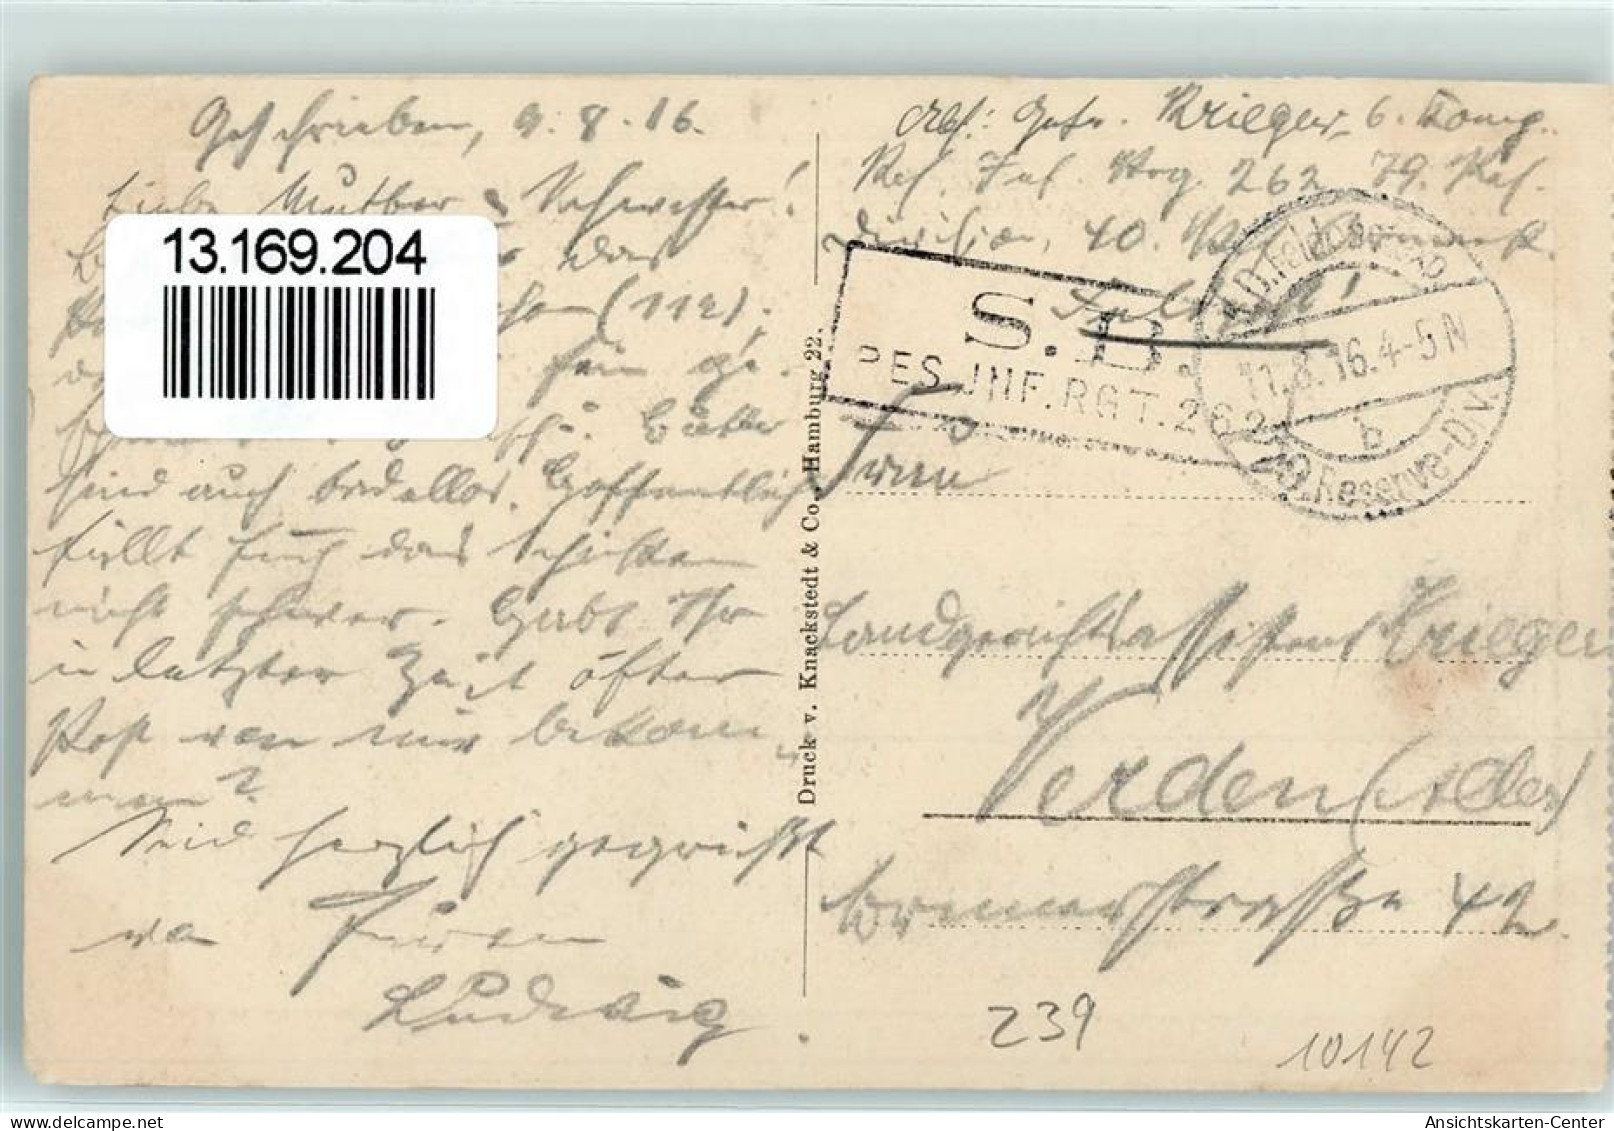 Geschrieben, 9.8.16.
Liebe Mutter & Schwester!
das
(112);
fein ge-
Güter
sind auch tadellos. Hoffentlich
fällt Euch das Schicken
nicht schwer. Habt Ihr
in letzter Zeit öfter
Post von mir bekom-
men?
Seid herzlich gegrüßt
von Eurem
Ludwig.
13.169.204
Druck v. Knackstedt & Co., Hamburg 22.
Abs.: Gefr. Krieger, 6. Komp.
Res. Inf. Reg. 262 79. Res.
Division, 40. Res.
S. B.
RES. INF. RGT. 262
K.D. Feldpost
11.8.16.4-5 N
b
79. Reserve-Div.
Frau
Landgerichtsassistent Krieger
Verden (Aller)
Bremerstraße 42.
239
10142
Ansichtskarten-Center